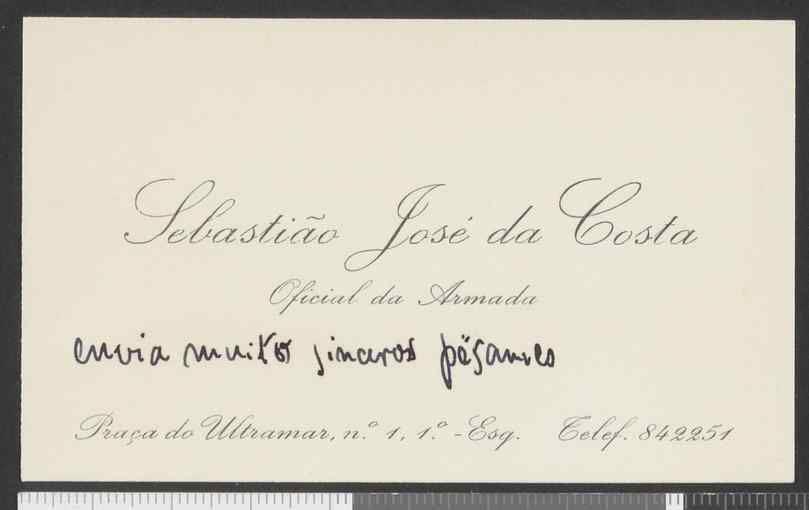 Sebastião José da Costa
Oficial da Armada
envia muitos sinceros pêsames
Praça do Ultramar, n.º 1, 1.º - Esq. Telef. 842251